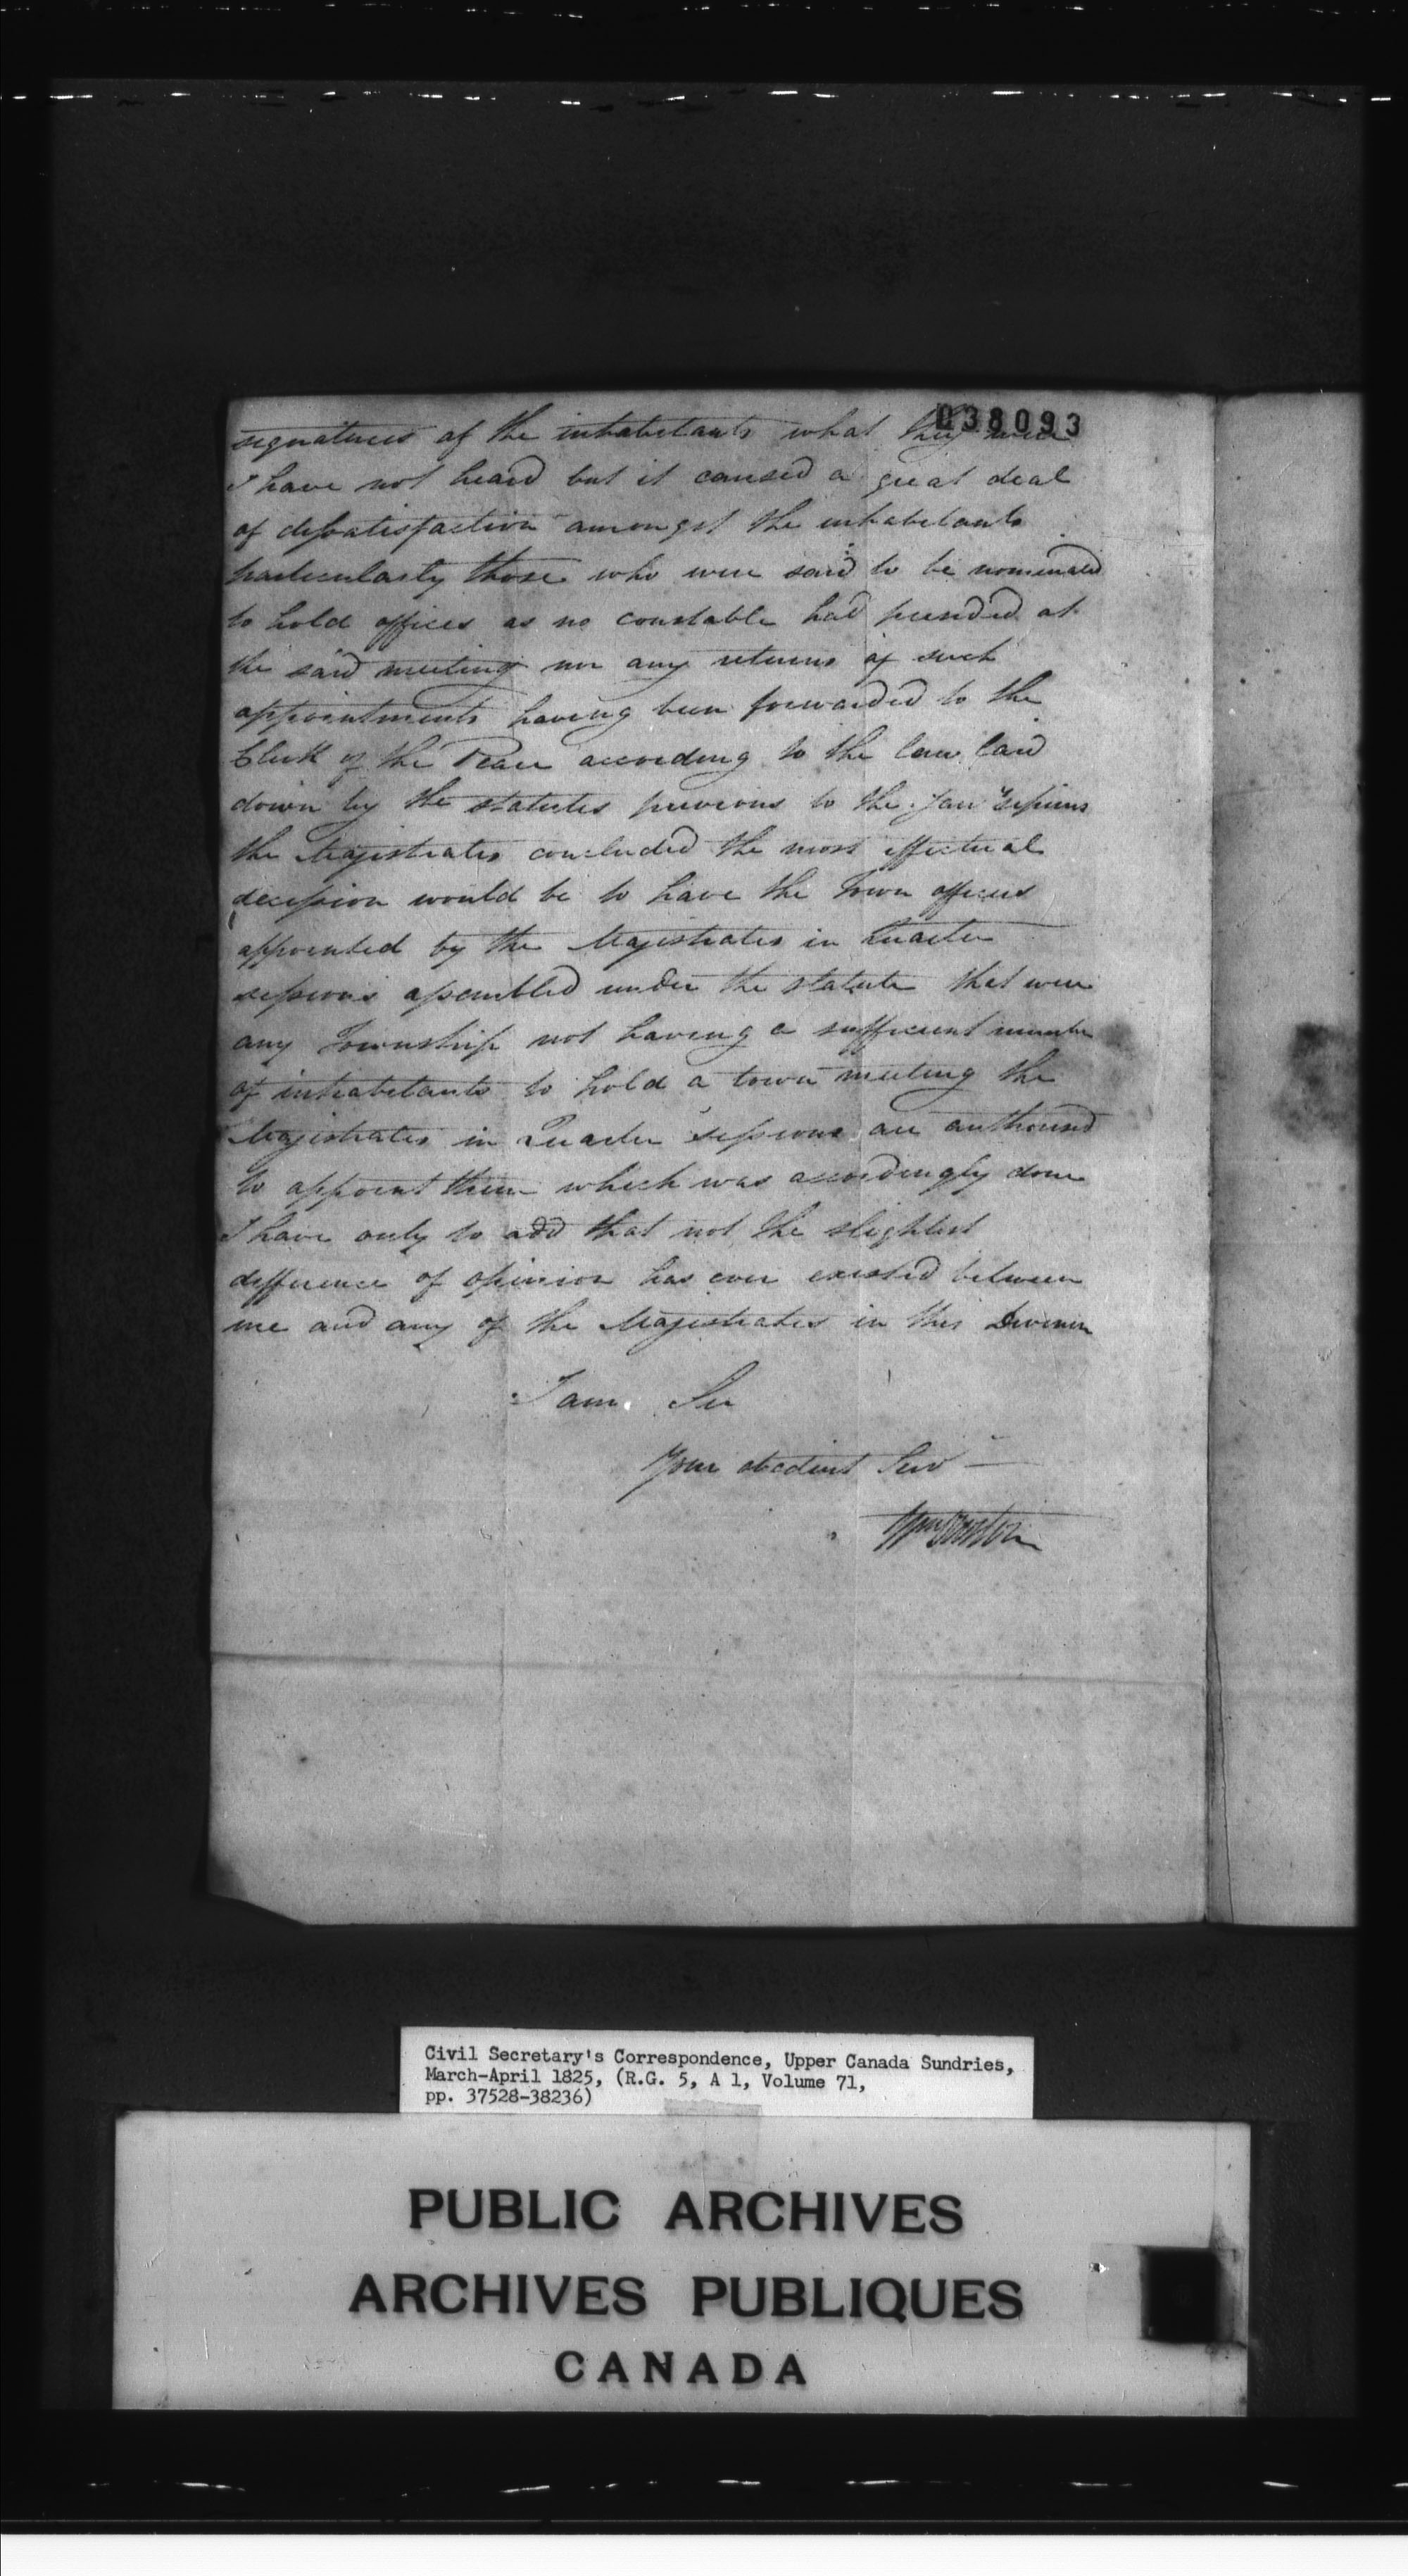 038093
signatures of the inhabitants what they were
I have not heard but it caused a great deal
of dissatisfaction amongst the inhabitants
particularly those who were said to be nominated
to hold offices as no constable had presided at
the said meeting nor any returns of such
appointments having been forwarded to the
Clerk of the Peace according to the law laid
down by the statutes previous to the Jan sessions
the Magistrates concluded the most effectual
decission would be to have the Town officers
appointed by the Magistrates in Quarter
sessions assembled under the statute that were
any Township not having a sufficient number
of inhabitants to hold a town meeting the
Magistrates in Quarter sessions are authorised
to appoint them which was accordingly done
I have only to add that not the slightest
difference of opinion has ever existed between
me and any of the Magistrates in this
I am Sir
Your obedient Serv
Wm
Civil Secretary's Correspondence, Upper Canada Sundries,
March-April 1825, (R.G. 5, A 1, Volume 71,
pp. 37528-38236)
PUBLIC ARCHIVES
ARCHIVES PUBLIQUES
CANADA